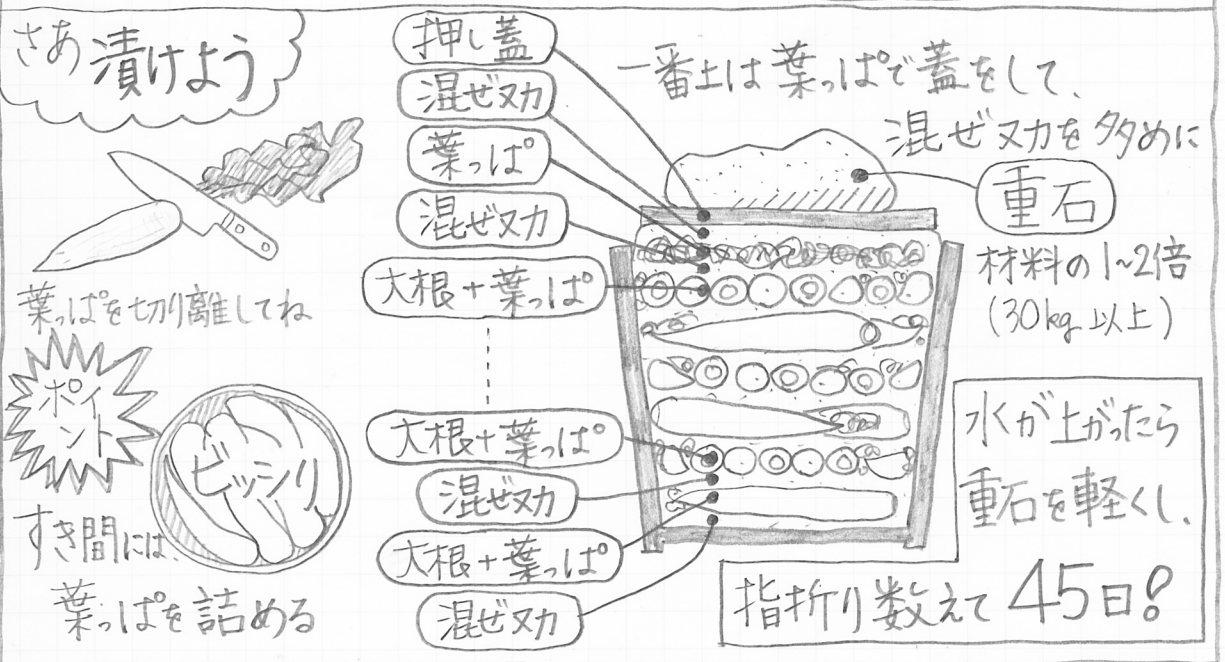 さあ漬けよう
葉っぱを切り離してね
ポイ
ント
ビッシリ
すき間には、
葉っぱを詰める
押し蓋
混ぜヌカ
葉っぱ
混ぜヌカ
大根+葉っぱ
大根+葉っぱ
混ぜヌカ
大根+葉っぱ
混ぜヌカ
一番上は葉っぱで蓋をして、
混ぜヌカを多めに
重石
材料の1~2倍
(30kg以上)
水が上がったら
重石を軽くし、
指折り数えて45日!